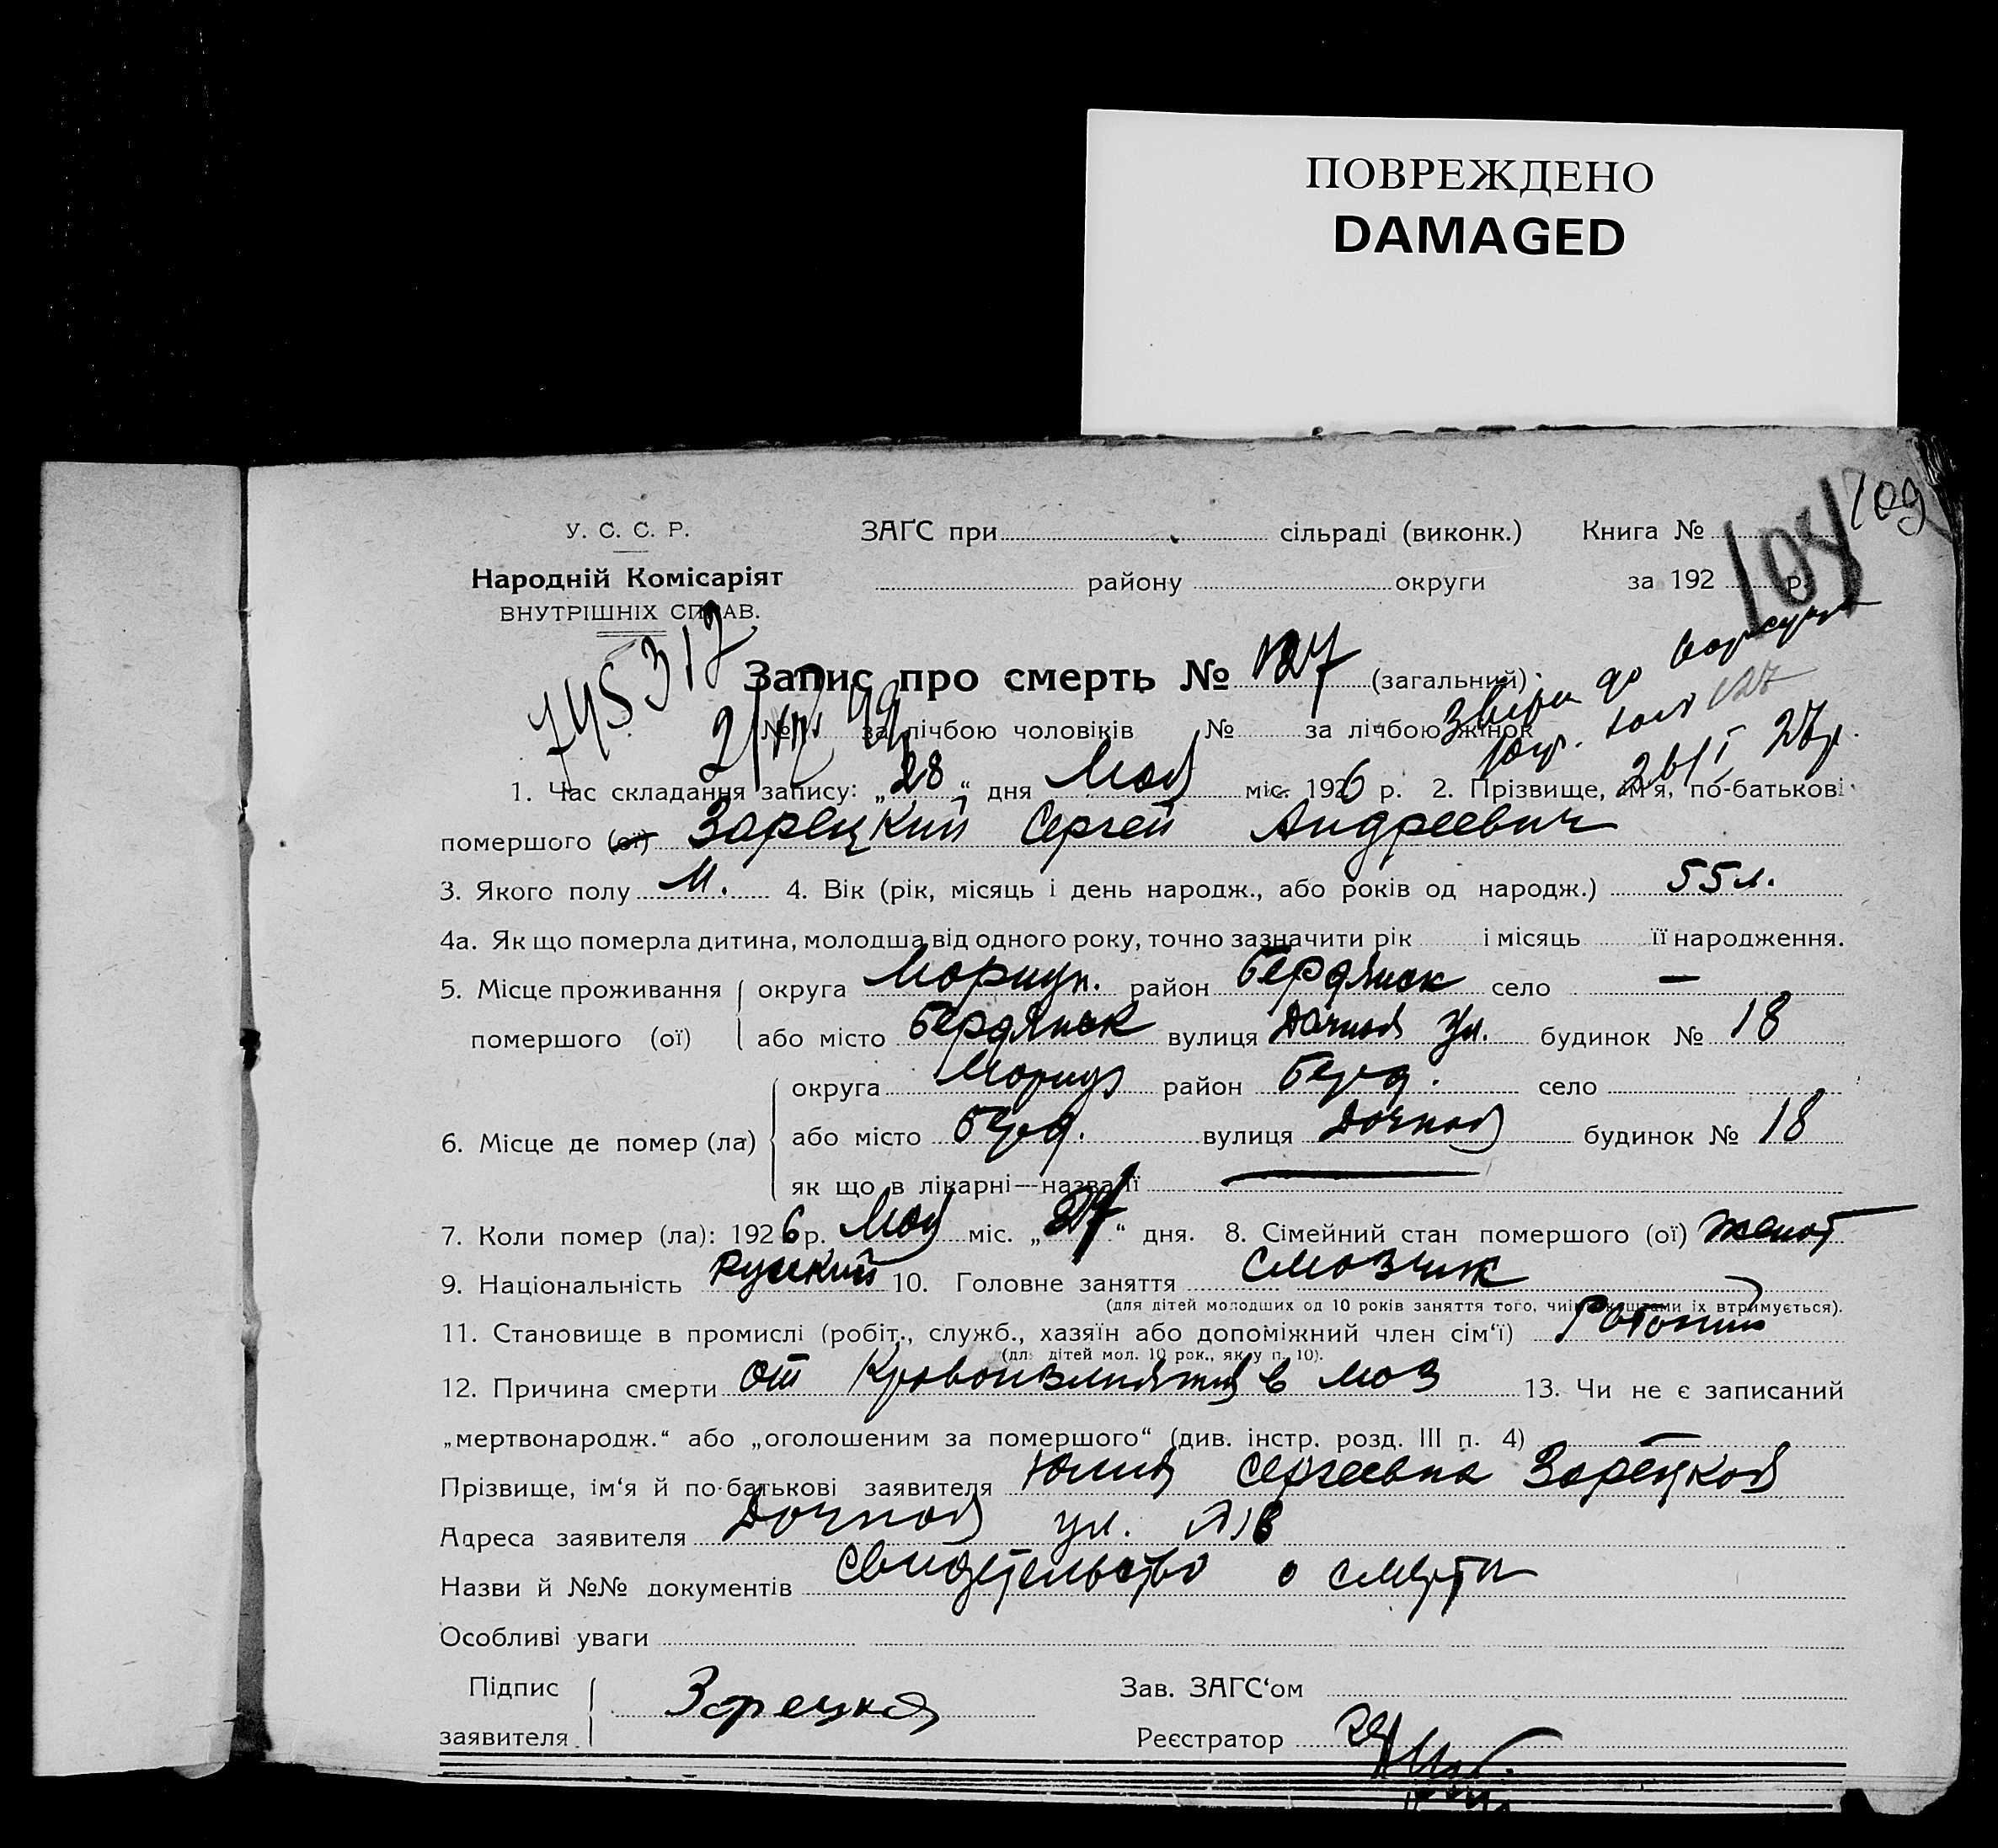 ПОВРЕЖДЕНО
DAMAGED
109
108
У. С. С. Р.
ЗАҐС при сільраді (виконк.) Книга №
Народній Комісаріят
району округи за 192 р.
ВНУТРІШНІХ СПРАВ.
745312
Запис про смерть № 127 (загальний)
№ за лічбою чоловіків № за лічбою жінок
1. Час складання запису: „28“ дня Мая міс. 1926 р. 2. Прізвище, ім'я, по-батькові
помершого (ої) Зарецкий Сергей Андреевич
3. Якого полу М. 4. Вік (рік, місяць і день народж., або років од народж.) 55 л.
4а. Як що померла дитина, молодша від одного року, точно зазначити рік і місяць її народження.
5. Місце проживання округа Мариуп. район Бердянск село —
помершого (ої) або місто Бердянск вулиця Дачная ул. будинок № 18
округа Мариуп район Берд. село
6. Місце де помер (ла) або місто Берд. вулиця Дачная будинок № 18
як що в лікарні—назва її —
7. Коли помер (ла): 1926 р. Мая міс. „27“ дня. 8. Сімейний стан помершого (ої) женат
9. Національність Русский 10. Головне заняття смазчик
(для дітей молодших од 10 років заняття того, чиїми коштами їх втримується).
11. Становище в промислі (робіт., служб., хазяїн або допоміжний член сім'ї)
(для дітей мол. 10 рок., як у п. 10).
12. Причина смерти от Кровоизлияния в моз 13. Чи не є записаний
„мертвонародж.“ або „оголошеним за помершого“ (див. інстр. розд. III п. 4) —
Прізвище, ім'я й по-батькові заявителя Юлия Сергеевна Зарецкая
Адреса заявителя Дачная ул. №18
Назви й №№ документів Свидетельство о смерти
Особливі уваги
Підпис Зав. ЗАҐС'ом
заявителя Зарецкая Реєстратор